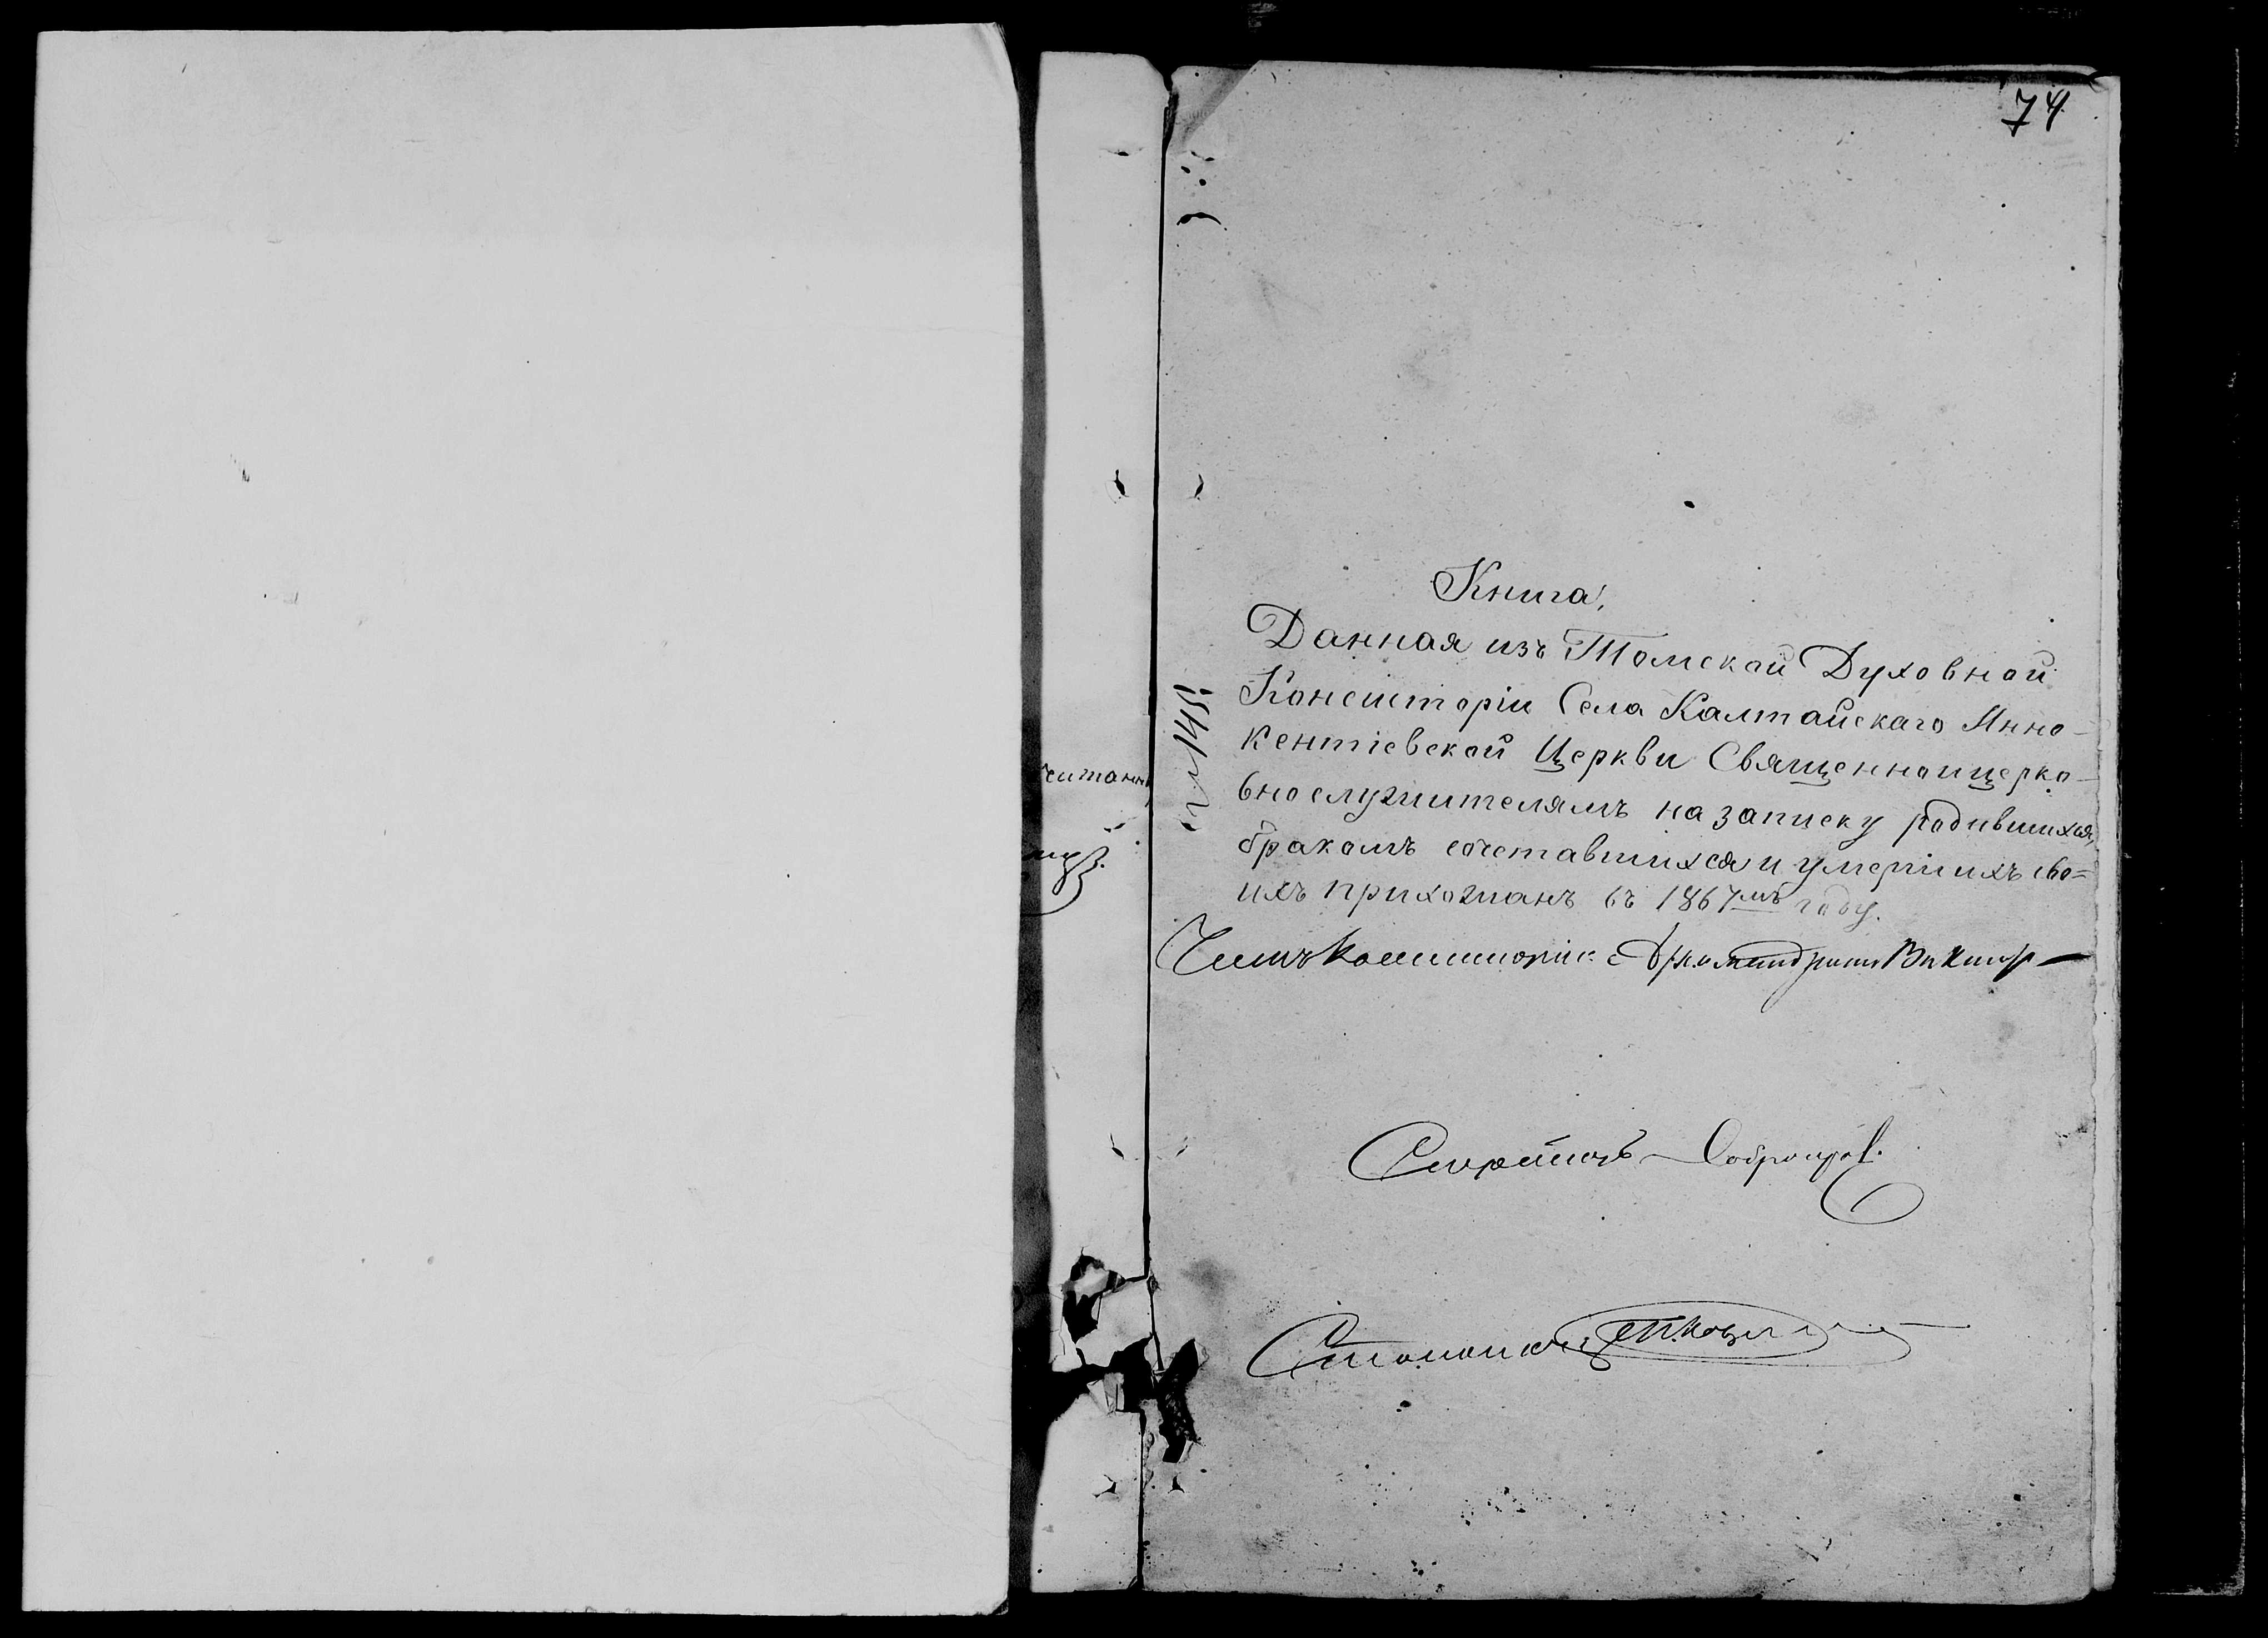 74
Книга,
Данная изъ Томской Духовной
Консисторіи Села Калтайскаго Инно-
кентіевской Церкви Священноцерко-
внослужителямъ на записку родившихся,
бракомъ сочетавшихся и умершихъ сво=
ихъ прихожанъ въ 1867мъ году.
Членъ Консисторіи Архимандритъ Викторъ
Секретарь
Столоначальникъ